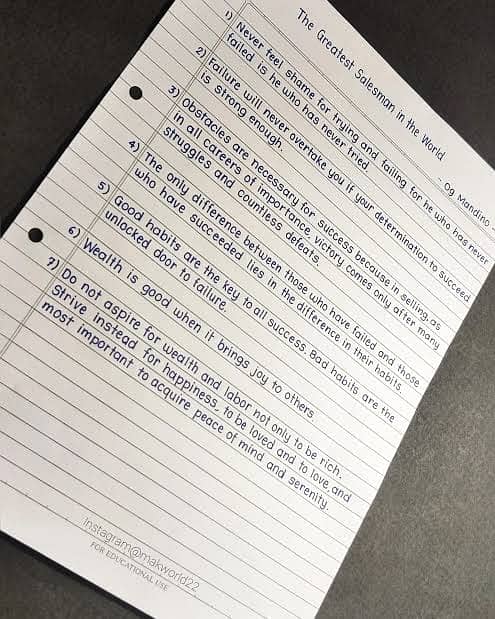 The Greatest Salesman in the World
- Og Mandino -
1) Never feel shame for trying and failing for he who has never
failed is he who has never tried.
2) Failure will never overtake you if your determination to succeed
is strong enough.
3) Obstacles are necessary for success because in selling, as
in all careers of importance, victory comes only after many
struggles and countless defeats.
4) The only difference between those who have failed and those
who have succeeded lies in the difference in their habits.
5) Good habits are the key to all success. Bad habits are the
unlocked door to failure.
6) Wealth is good when it brings joy to others.
7) Do not aspire for wealth and labor not only to be rich.
Strive instead for happiness, to be loved and to love, and
most important to acquire peace of mind and serenity.
instagram@makworld22
FOR EDUCATIONAL USE